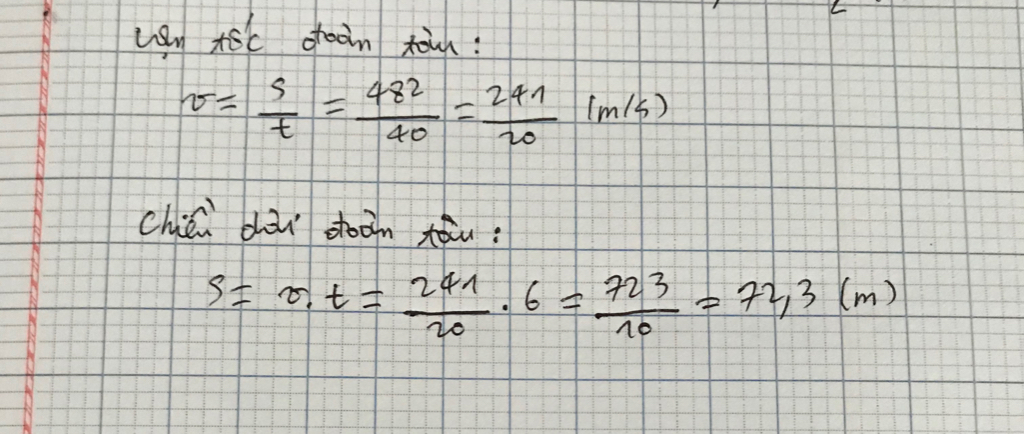 vận tốc đoàn tàu :
v = s/t = 482/40 = 241/20 (m/s)
Chiều dài đoàn tàu :
s = v . t = 241/20 . 6 = 723/10 = 72,3 (m)